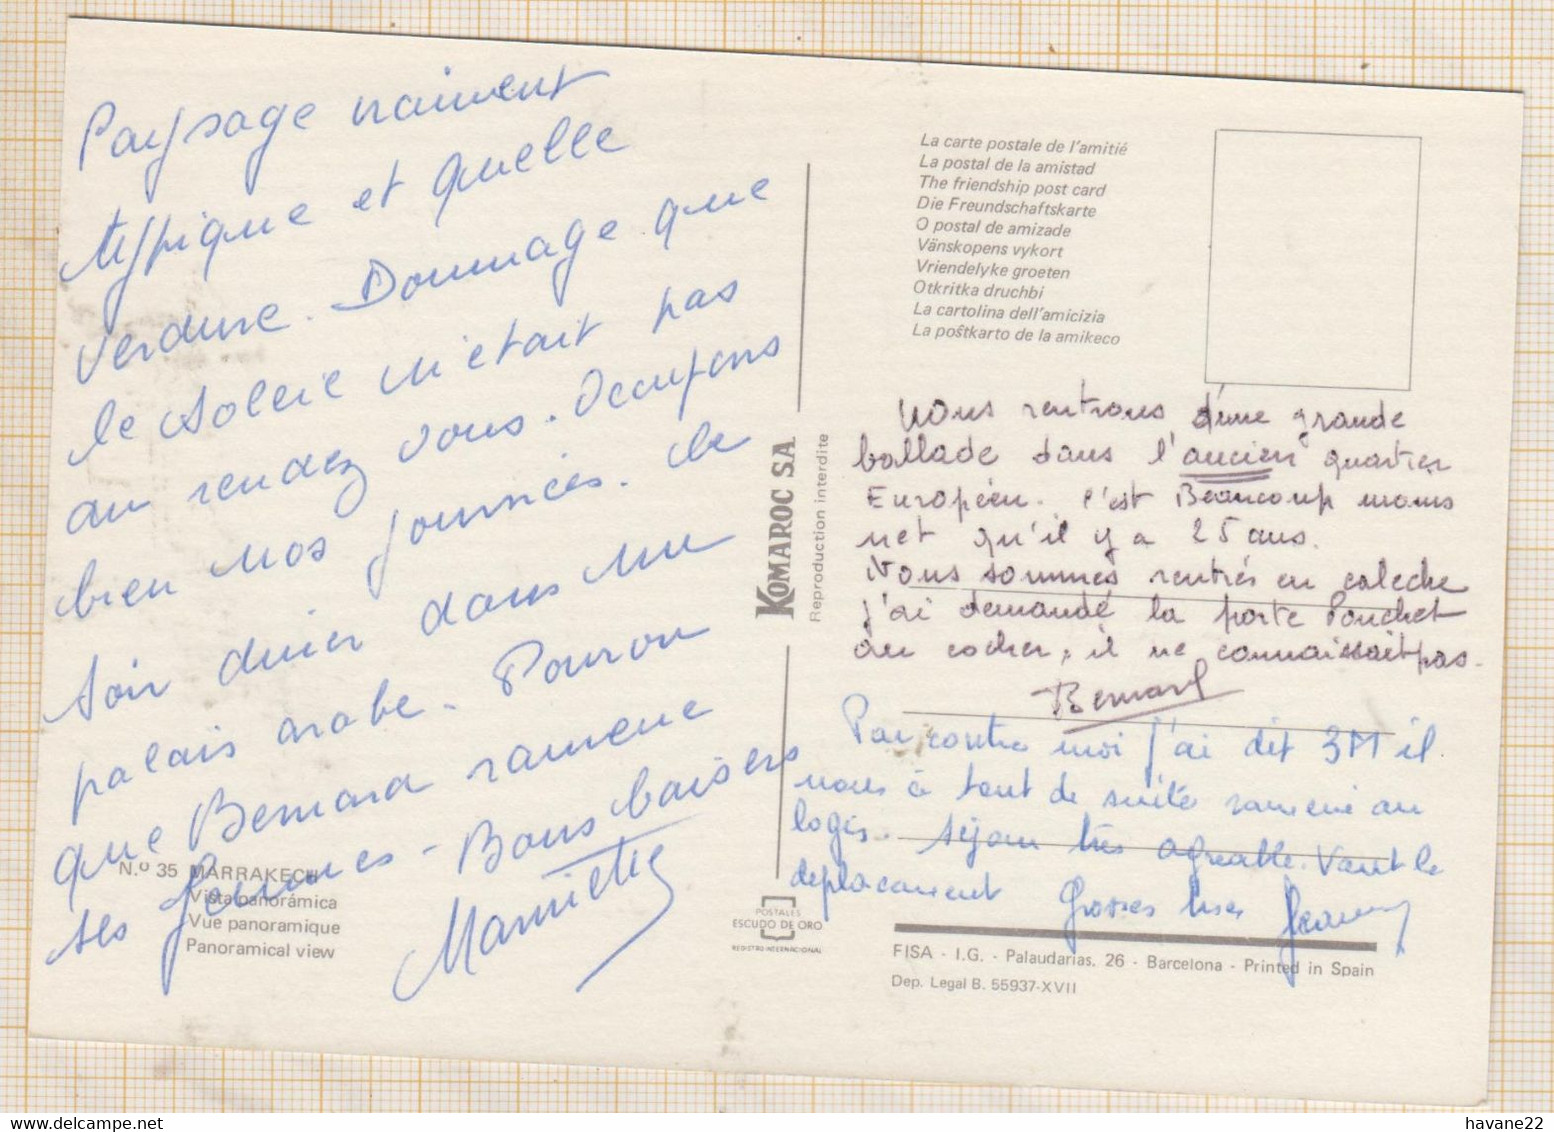 Paysage vraiment
typique et quelle
verdure. Dommage que
le soleil n'était pas
au rendez vous. Occupons
bien nos journées. Le
soir diner dans un
palais arabe. Pourvu
que Bernard ramene
ses femmes - Bons baisers
Mariette
N.º 35 MARRAKECH
Vista panorámica
Vue panoramique
Panoramical view
KOMAROC S.A.
Reproduction interdite
POSTALES
ESCUDO DE ORO
REGISTRO INTERNACIONAL
La carte postale de l'amitié
La postal de la amistad
The friendship post card
Die Freundschaftskarte
O postal de amizade
Vänskopens vykort
Vriendelyke groeten
Otkritka druchbi
La cartolina dell'amicizia
La poŝtkarto de la amikeco
Nous rentrons d'une grande
ballade dans l'ancien quartier
Européen. c'est Beaucoup moins
net qu'il y a 25 ans.
Nous sommes rentrés en caleche
j'ai demandé la porte Pouchet
au cocher, il ne connaissait pas.
Bernard
Par contre moi j'ai dit 3M il
nous à tout de suite ramené au
logis. Séjour très agreable. Vaut le
deplacement Grosses bises
FISA - I.G. - Palaudarias, 26 - Barcelona - Printed in Spain
Dep. Legal B. 55937-XVII
www.delcampe.net
havane22